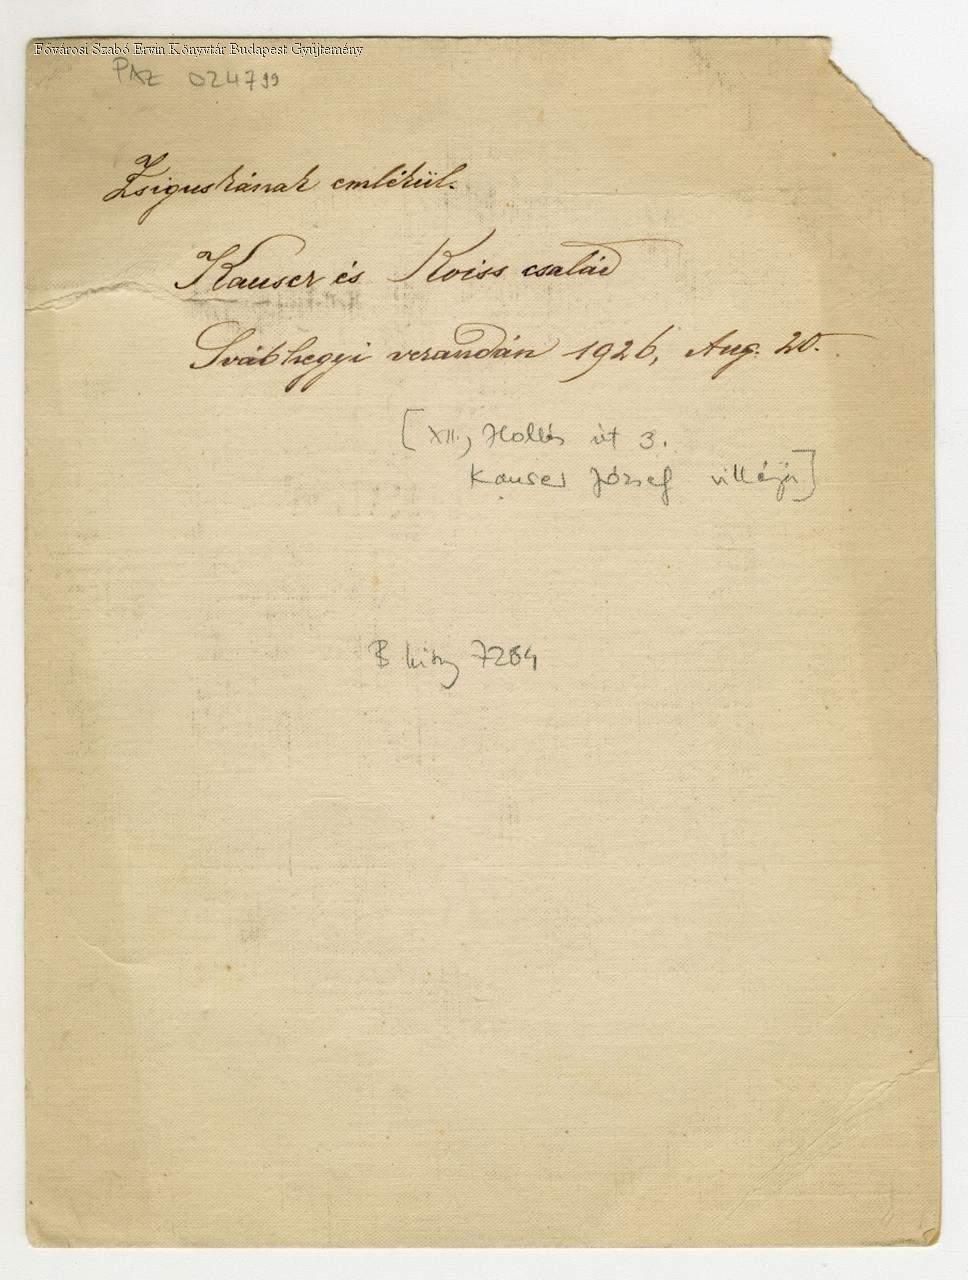 Fővárosi Szabó Ervin Könyvtár Budapest Gyűjtemény
PAZ 024799
Zsiguskának emlékül.
Kauser és Koiss család
Svábhegyi verandán 1926, Aug. 20.
[XII., Hollós út 3.
Kauser József villája]
B 7284